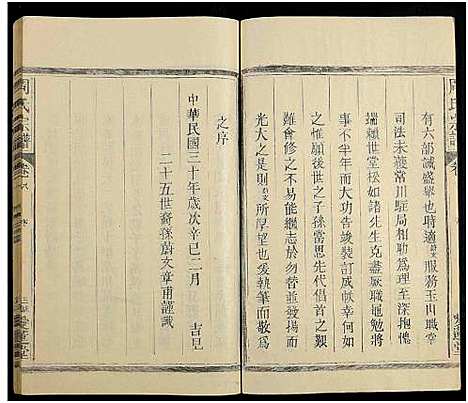 周氏宗譜
有六部誠盛舉也時適蔚文服務玉山職掌
司法未獲常川駐局相助爲理至深抱愧
端賴世堂松如諸先生克盡厥職黽勉將
事不半年而大功告竣裝訂成帙幸何如
之惟願後世之子孫當思先代倡首之
難會修之不易能繼志於勿替並發揚而
光大之是則蔚文所厚望也爰執筆而敬爲
之序
中華民國三十年歲次辛巳二月　吉旦
二十五世裔孫蔚文章甫謹識
周氏宗譜